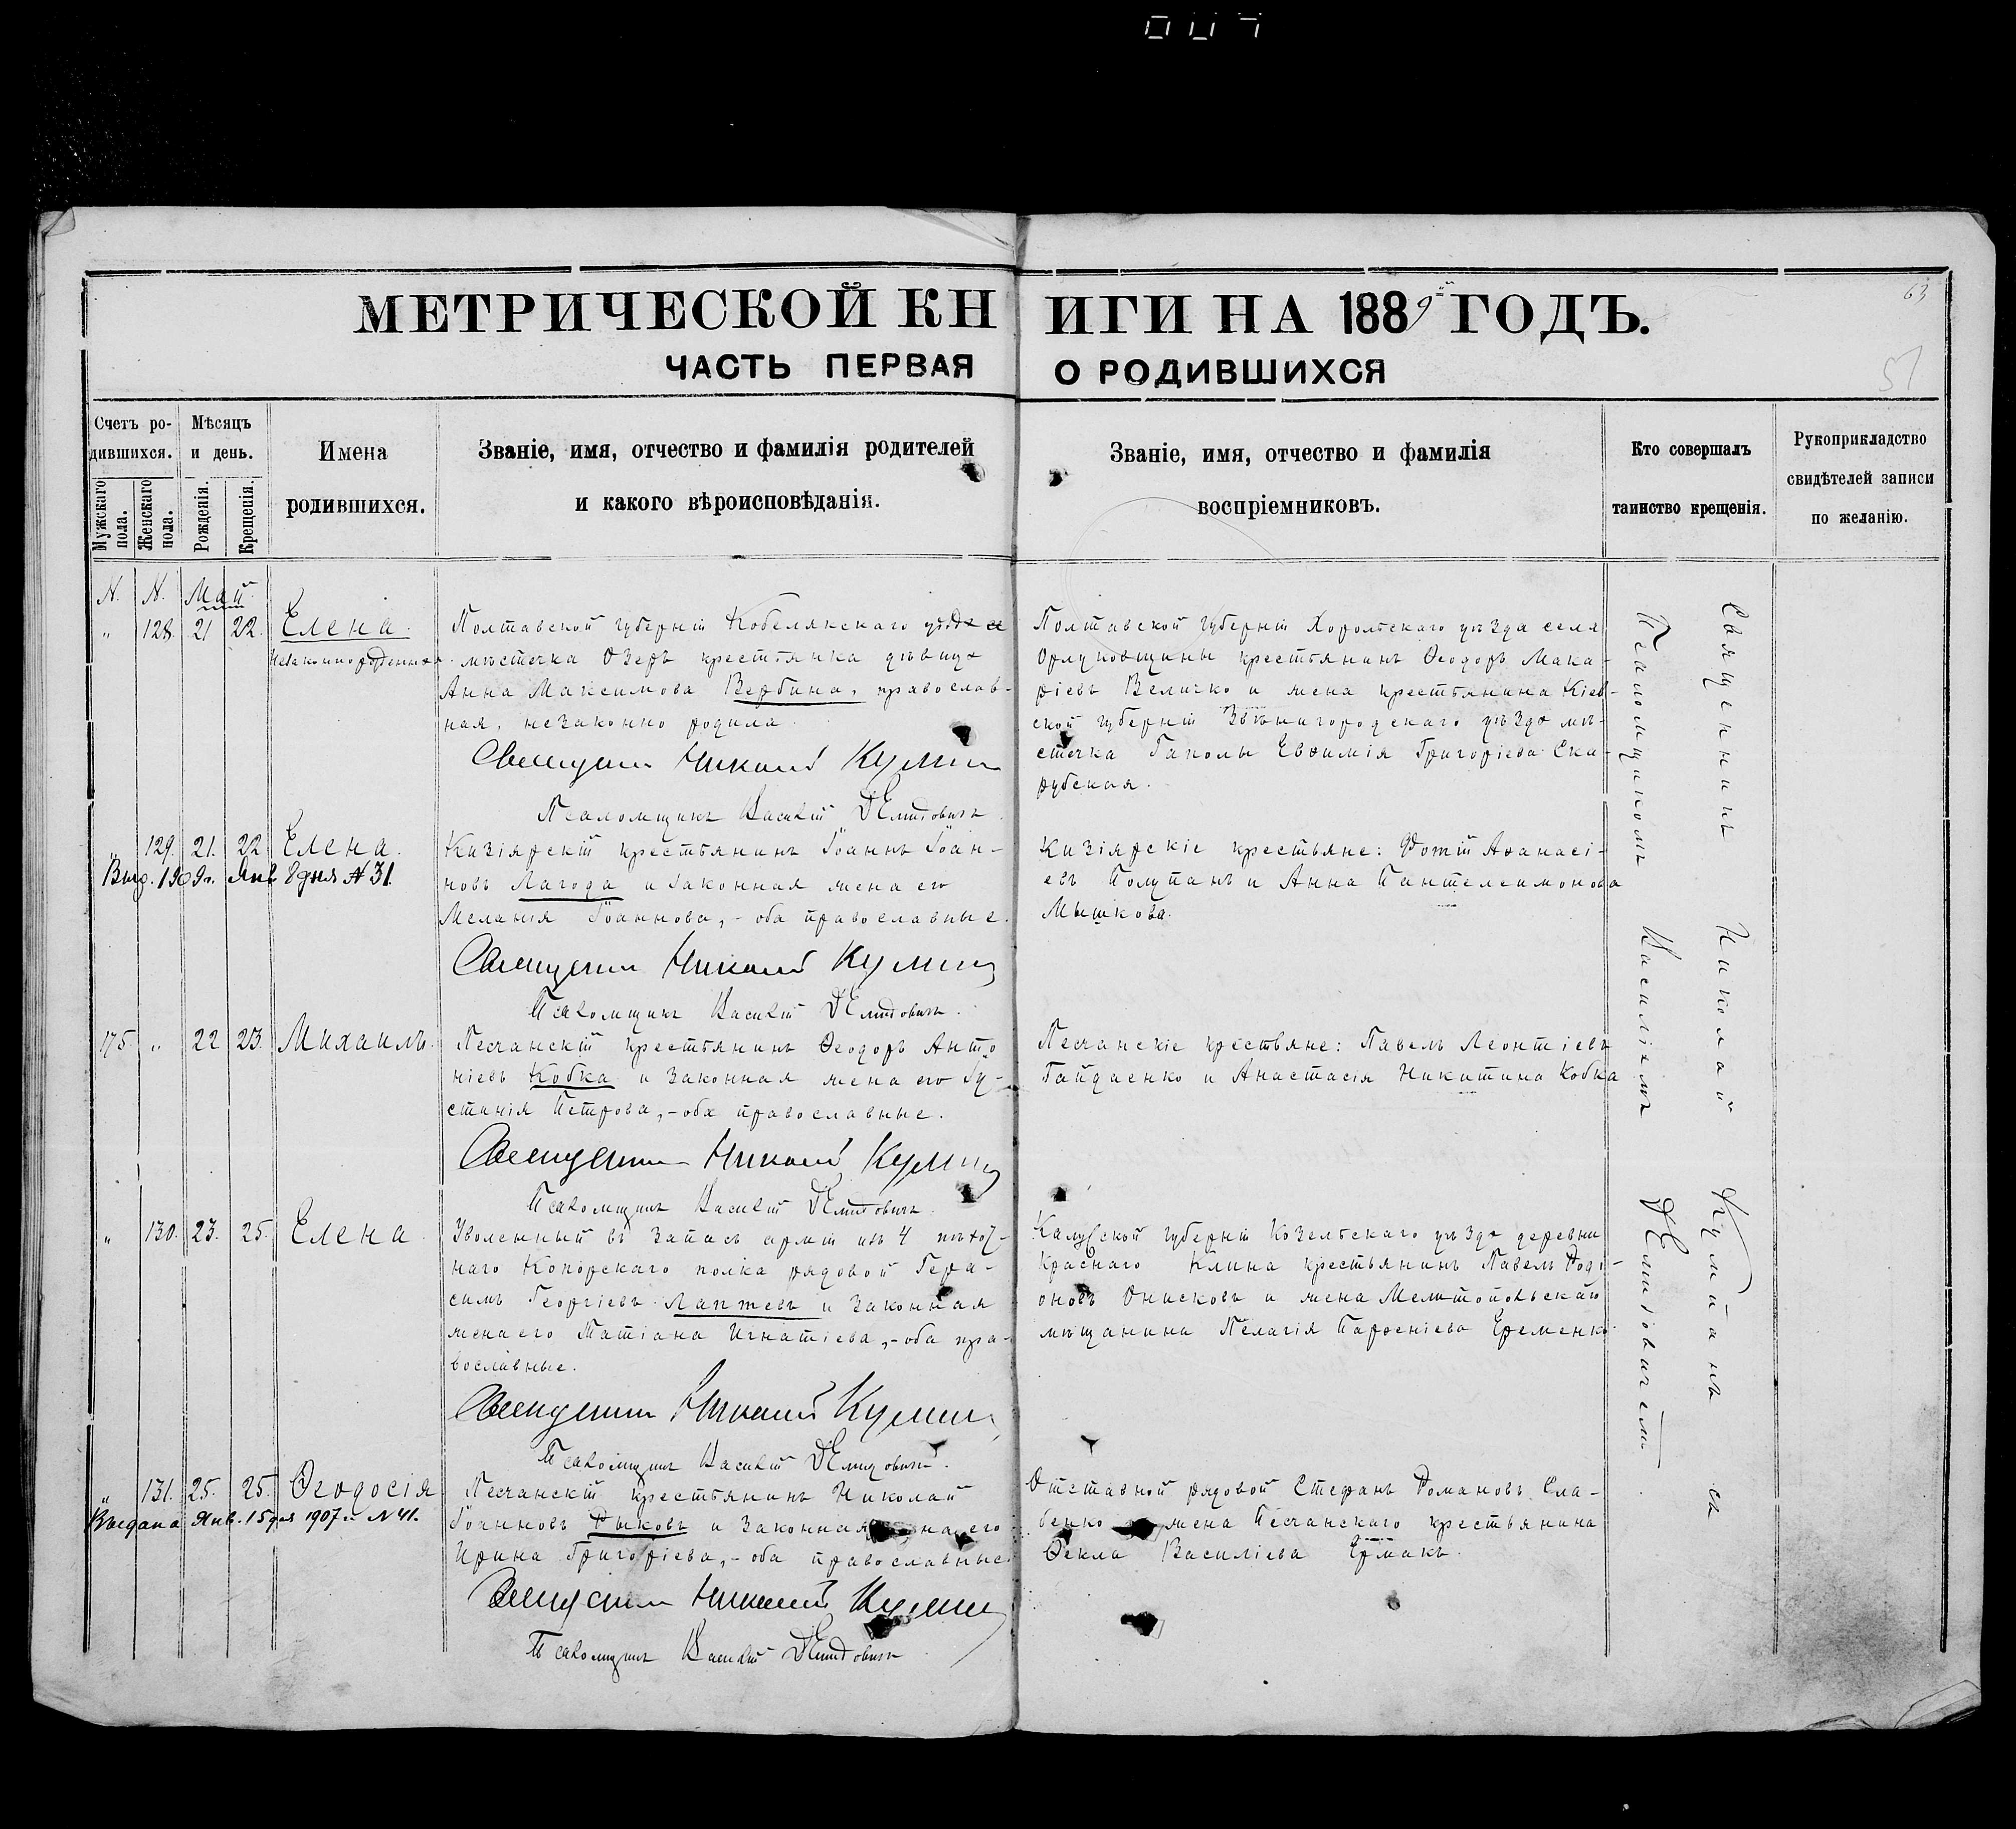 007
МЕТРИЧЕСКОЙ КНИГИ НА 1889й ГОДЪ.
63
ЧАСТЬ ПЕРВАЯ О РОДИВШИХСЯ
57
Счетъ родившихся.
Мужскаго пола.
Женскаго пола.
Мѣсяцъ и день.
Рожденія.
Крещенія.
Имена
родившихся.
Званіе, имя, отчество и фамилія родителей
и какого вѣроисповѣданія.
Званіе, имя, отчество и фамилія
воспріемниковъ.
Кто совершалъ
таинство крещенія.
Рукоприкладство
свидѣтелей записи
по желанію.
N. N. Май
" 128. 21 22. Елена.
Незаконнорожденная
Полтавской губерніи Кобелякскаго уѣзда
мѣстечка Озеръ крестьянка дѣвица
Анна Максимова Вербина, православ-
ная, незаконно родила.
Священникъ Николай Кулманъ
Псаломщикъ Василій Демидовичъ.
Полтавской губерніи Хорольскаго уѣзда села
Орлуковщины крестьянинъ Ѳеодоръ Мака-
ріевъ Величко и жена крестьянина Кіев-
ской губерніи Звѣнигородскаго уѣзда мѣ-
стечка Ганолы Евѳимія Григоріева Ска-
рубская.
" 129. 21. 22 Елена.
Выд. 1909г. Янв 8 дня № 31.
Кизіярскій крестьянинъ Іоаннъ Іоан-
новъ Лагода и законная жена его
Меланія Іоаннова, - оба православные.
Священникъ Николай Кулманъ
Псаломщикъ Василій Демидовичъ.
Кизіярскіе крестьяне: Фотій Аѳанасі-
евъ Полупанъ и Анна Пантелеимонова
Мышкова.
175 " 22 23. Михаилъ.
Песчанскій крестьянинъ Ѳеодоръ Анто
ніевъ Кобка и законная жена его Іу-
стинія Петрова, - оба православные.
Священникъ Николай Кулманъ
Псаломщикъ Василій Демидовичъ.
Песчанскіе крестьяне: Павелъ Леонтіевъ
Гайдаенко и Анастасія Никитина Кобка
" 130. 23. 25. Елена.
Уволенный въ запасъ арміи изъ 4 пѣхот-
наго Копорскаго полка рядовой Гера-
симъ Георгіевъ Лаптевъ и законная
жена его Татіана Игнатіева, - оба пра-
вославные.
Священникъ Николай Кулманъ
Псаломщикъ Василій Демидовичъ.
Калужской губерніи Козельскаго уѣзда деревни
Краснаго Клина крестьянинъ Павелъ Роді-
оновъ Онисковъ и жена Мелитопольскаго
мѣщанина Пелагія Парѳеніева Еременко.
" 131. 25. 25. Ѳеодосія
Выдана Янв. 15 дня 1907 г. № 41.
Песчанскій крестьянинъ Николай
Іоанновъ Рыковъ и законная жена его
Ирина Григоріева, - оба православные.
Священникъ Николай Кулманъ
Псаломщикъ Василій Демидовичъ
Отставной рядовой Стефанъ Романовъ Сла-
бенко и жена Песчанскаго крестьянина
Ѳекла Василіева Ермакъ.
Священникъ Николай Кулманъ съ
Псаломщикомъ Василіемъ Демидовичемъ.